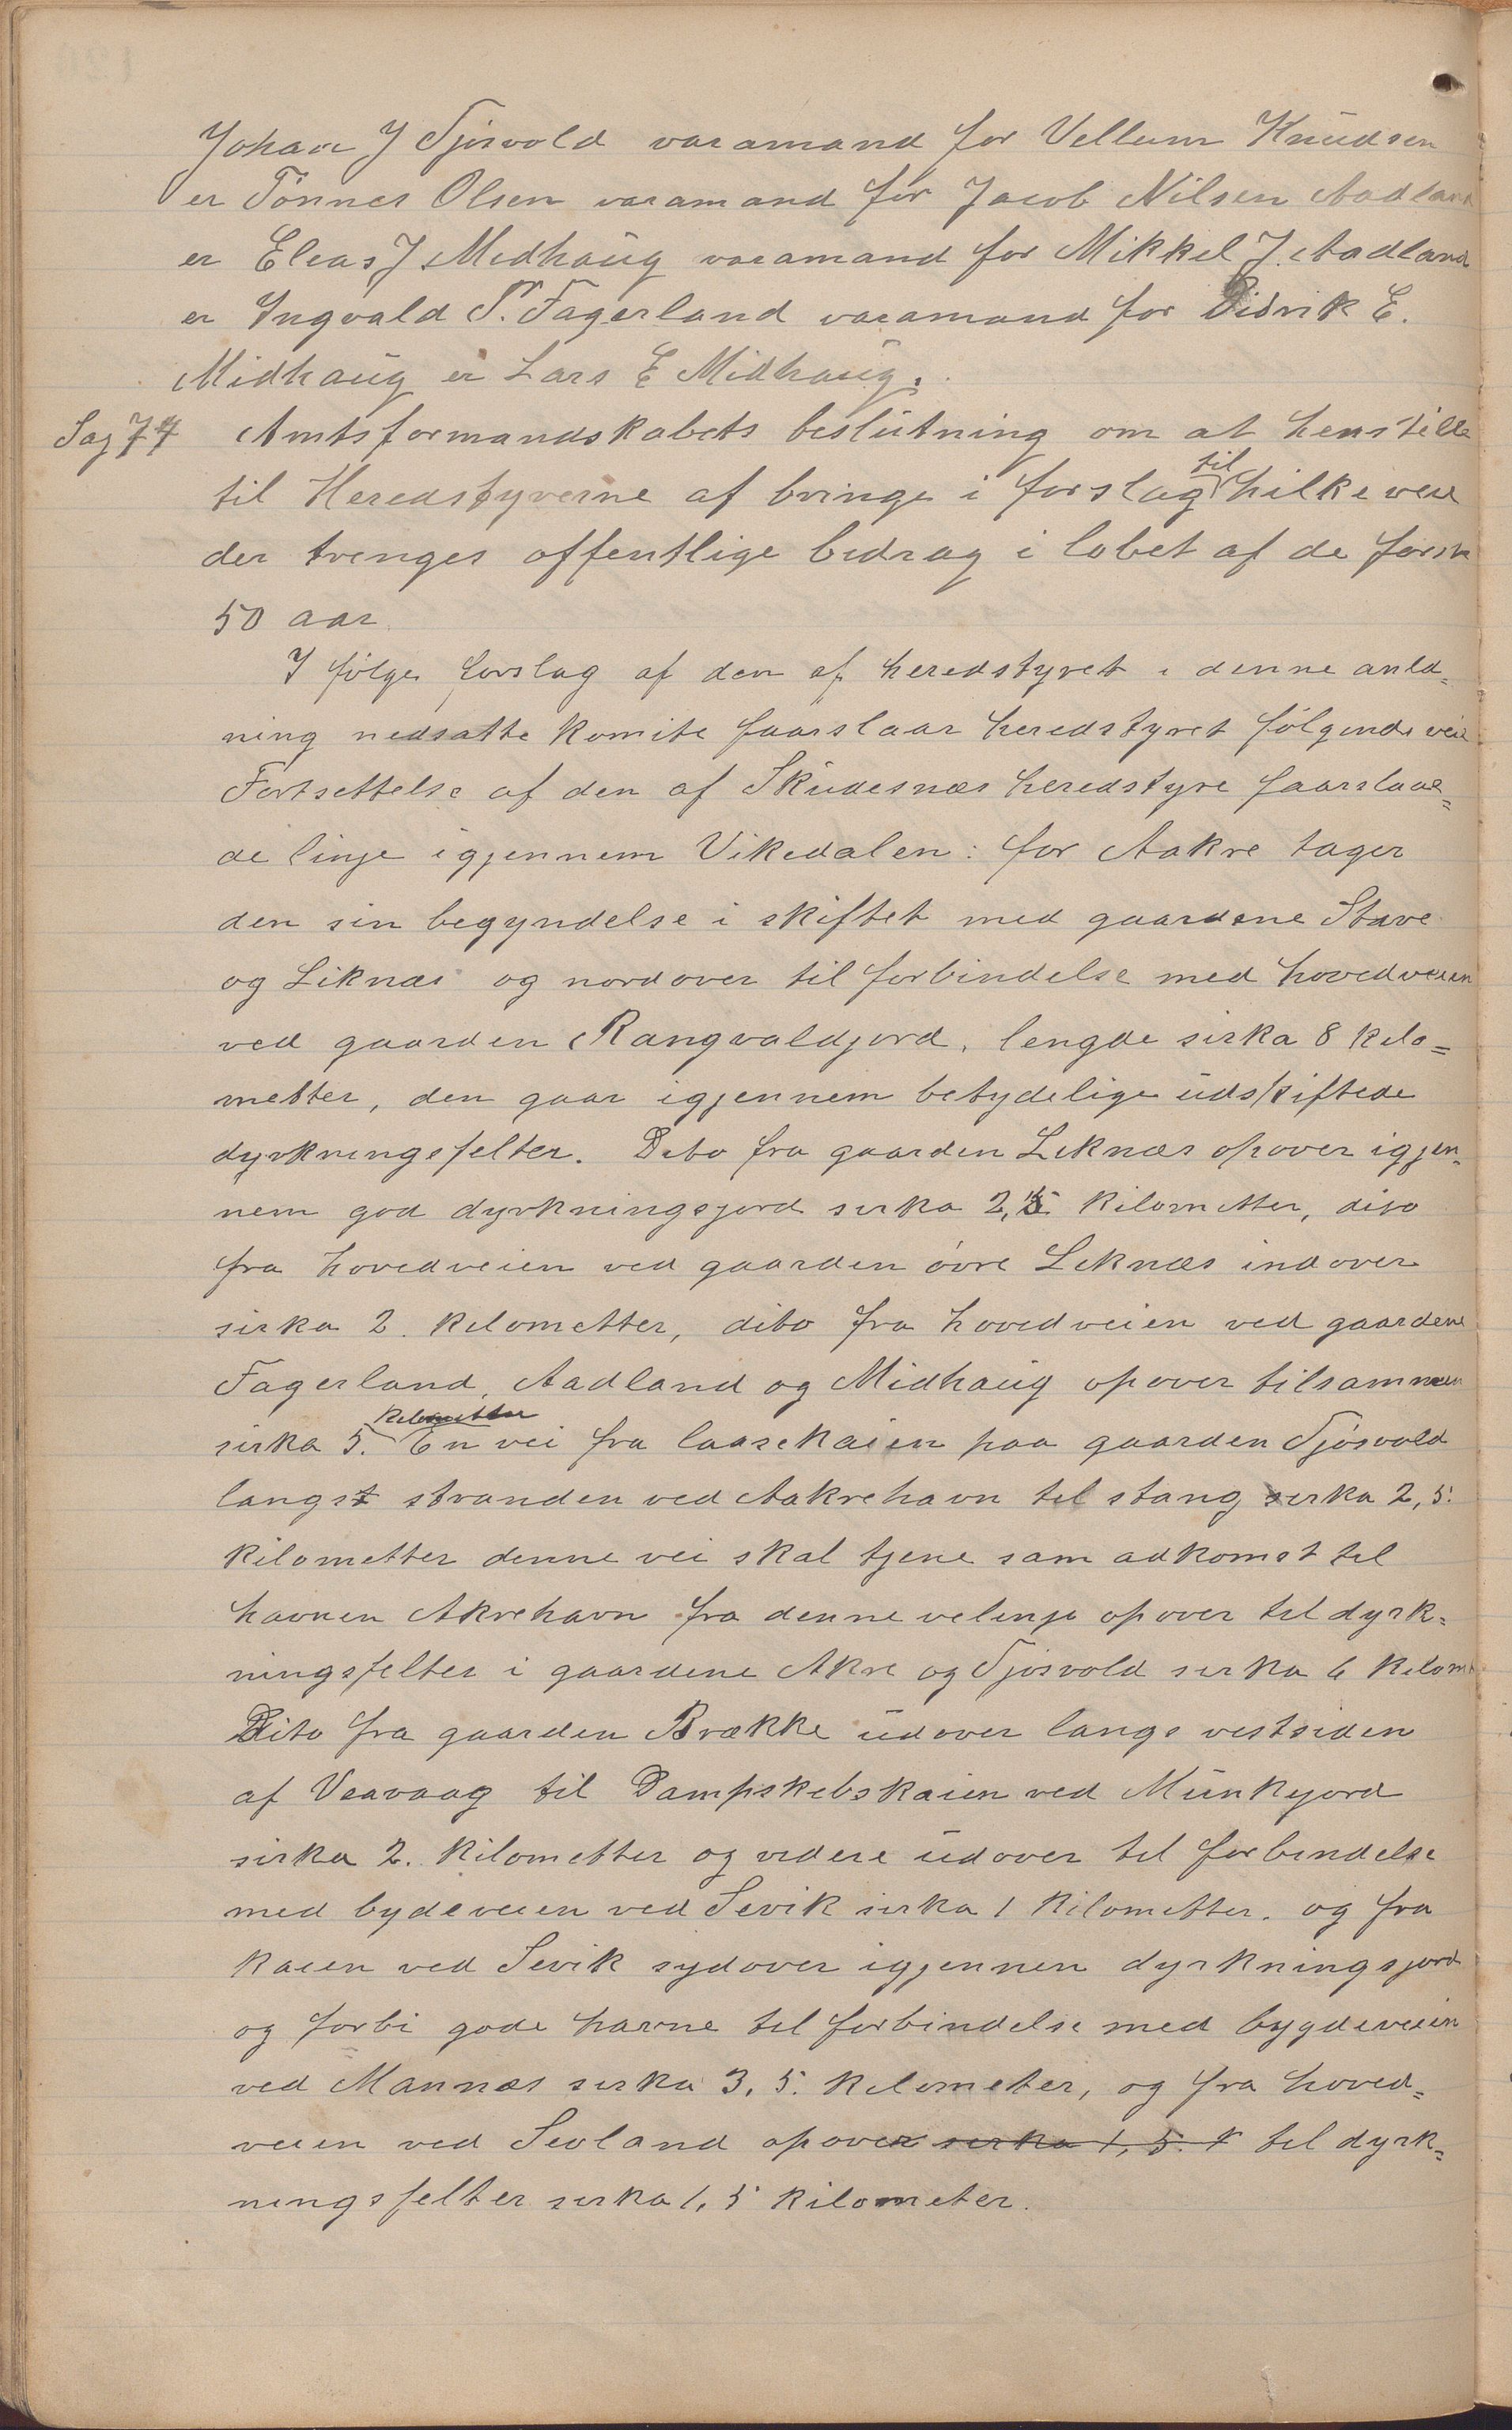 Johan J Sjøsvold varamand for Vellum Knudsen
er Tønnes Olsen varamand for Jacob Nilsen Aadland
er Eleas J Medhaug varamand for Mikkel J. Aadland
er Ingvald T. Fagerland varamand for Didrik E.
Midhaug er Lars E Midhaug.
Sag 77 Amtsformandskabets beslutning om at henstille
til Heredstyverne af bringe i forslag til hilke veie
der trenges offentlige bedrag i løbet af de først
50 aar.
I følge forslag af den af heredstyret i denne anled=
ning nedsatte komite faarslaar heredstyret følgende veie
Fortsettelse af den af Skudesnæs heredstyre faarslaae=
de linje igjennem Vikedalen: for Aakre tager
den sin begyndelse i skiftet med gaardene Stave
og Liknæs og nordover til forbindelse med hovedveien
ved gaarden Rangvaldjord, lengde sirka 8 kilo=
metter, den gaar igjennem betydelige udskiftede
dyrkningsfelter. Dito fra gaarden Liknæs opover igjen=
nem god dyrkningsjord sirka 2,5 kilometter, dito
fra hovedveien ved gaarden øvre Liknæs indover
sirka 2. kilometter, dito fra hovedveien ved gaardene
Fagerland, Aadland og Midhaug opover tilsammen
sirka 5. kilometter En vei fra laasekaien paa gaarden Sjøsvold
langst stranden ved Aakrehavn til stang sirka 2,5.
kilometter denne vei skal tjene som adkomst til
havnen Akrehavn fra denne velinje opover til dyrk=
ningsfelter i gaardene Akre og Sjøsvold sirka 6 kilomt
Dito fra gaarden Brække udover langs vestsiden
af Veavaag til Dampskibskaien ved Munkejord
sirka 2. kilometter og videre udover til forbindelse
med bydeveien ved Sevik sirka 1 kilometter. og fra
kaien ved Sevik sydover igjennen dyrkningsjord
og forbi gode havne til forbindelse med bygdeveien
ved Mannæs sirka 3,5. kilometer, og fra hoved=
veien ved Sevland opover sirka 1,5. k til dyrk=
ningsfelter sirka 1,5 kilometer.